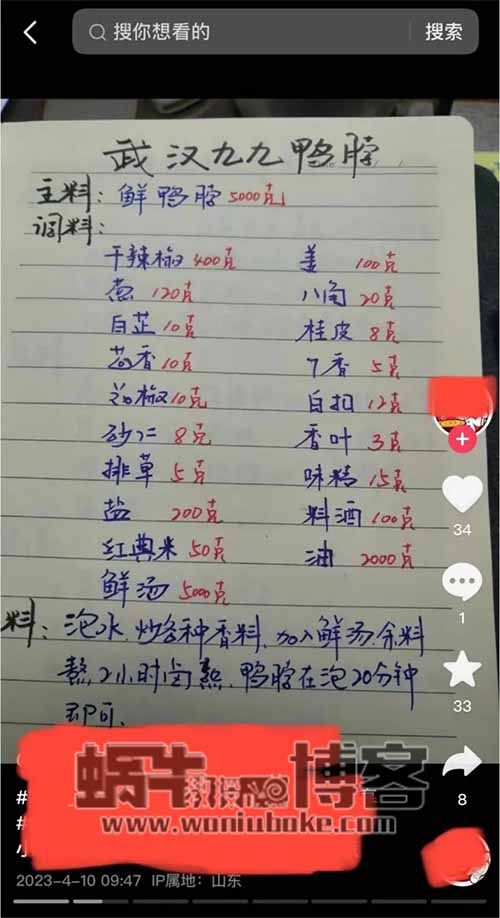 搜你想看的 搜索
武汉九九鸭脖
主料: 鲜鸭脖 5000克
调料:
干辣椒 400克 姜 100克
葱 120克 八角 20克
白芷 10克 桂皮 8克
茴香 10克 丁香 5克
花椒 10克 白扣 12克
砂仁 8克 香叶 3克
排草 5克 味精 15克
盐 200克 料酒 100克
红典米 50克 油 2000克
鲜汤 5000克
料: 泡水.炒各种香料.加入鲜汤.余料
熬2小时卤熟.鸭脖在泡20分钟
即可.
34
1
33
8
蜗牛博客
教授
www.woniuboke.com
#
#
2023-4-10 09:47 IP属地：山东